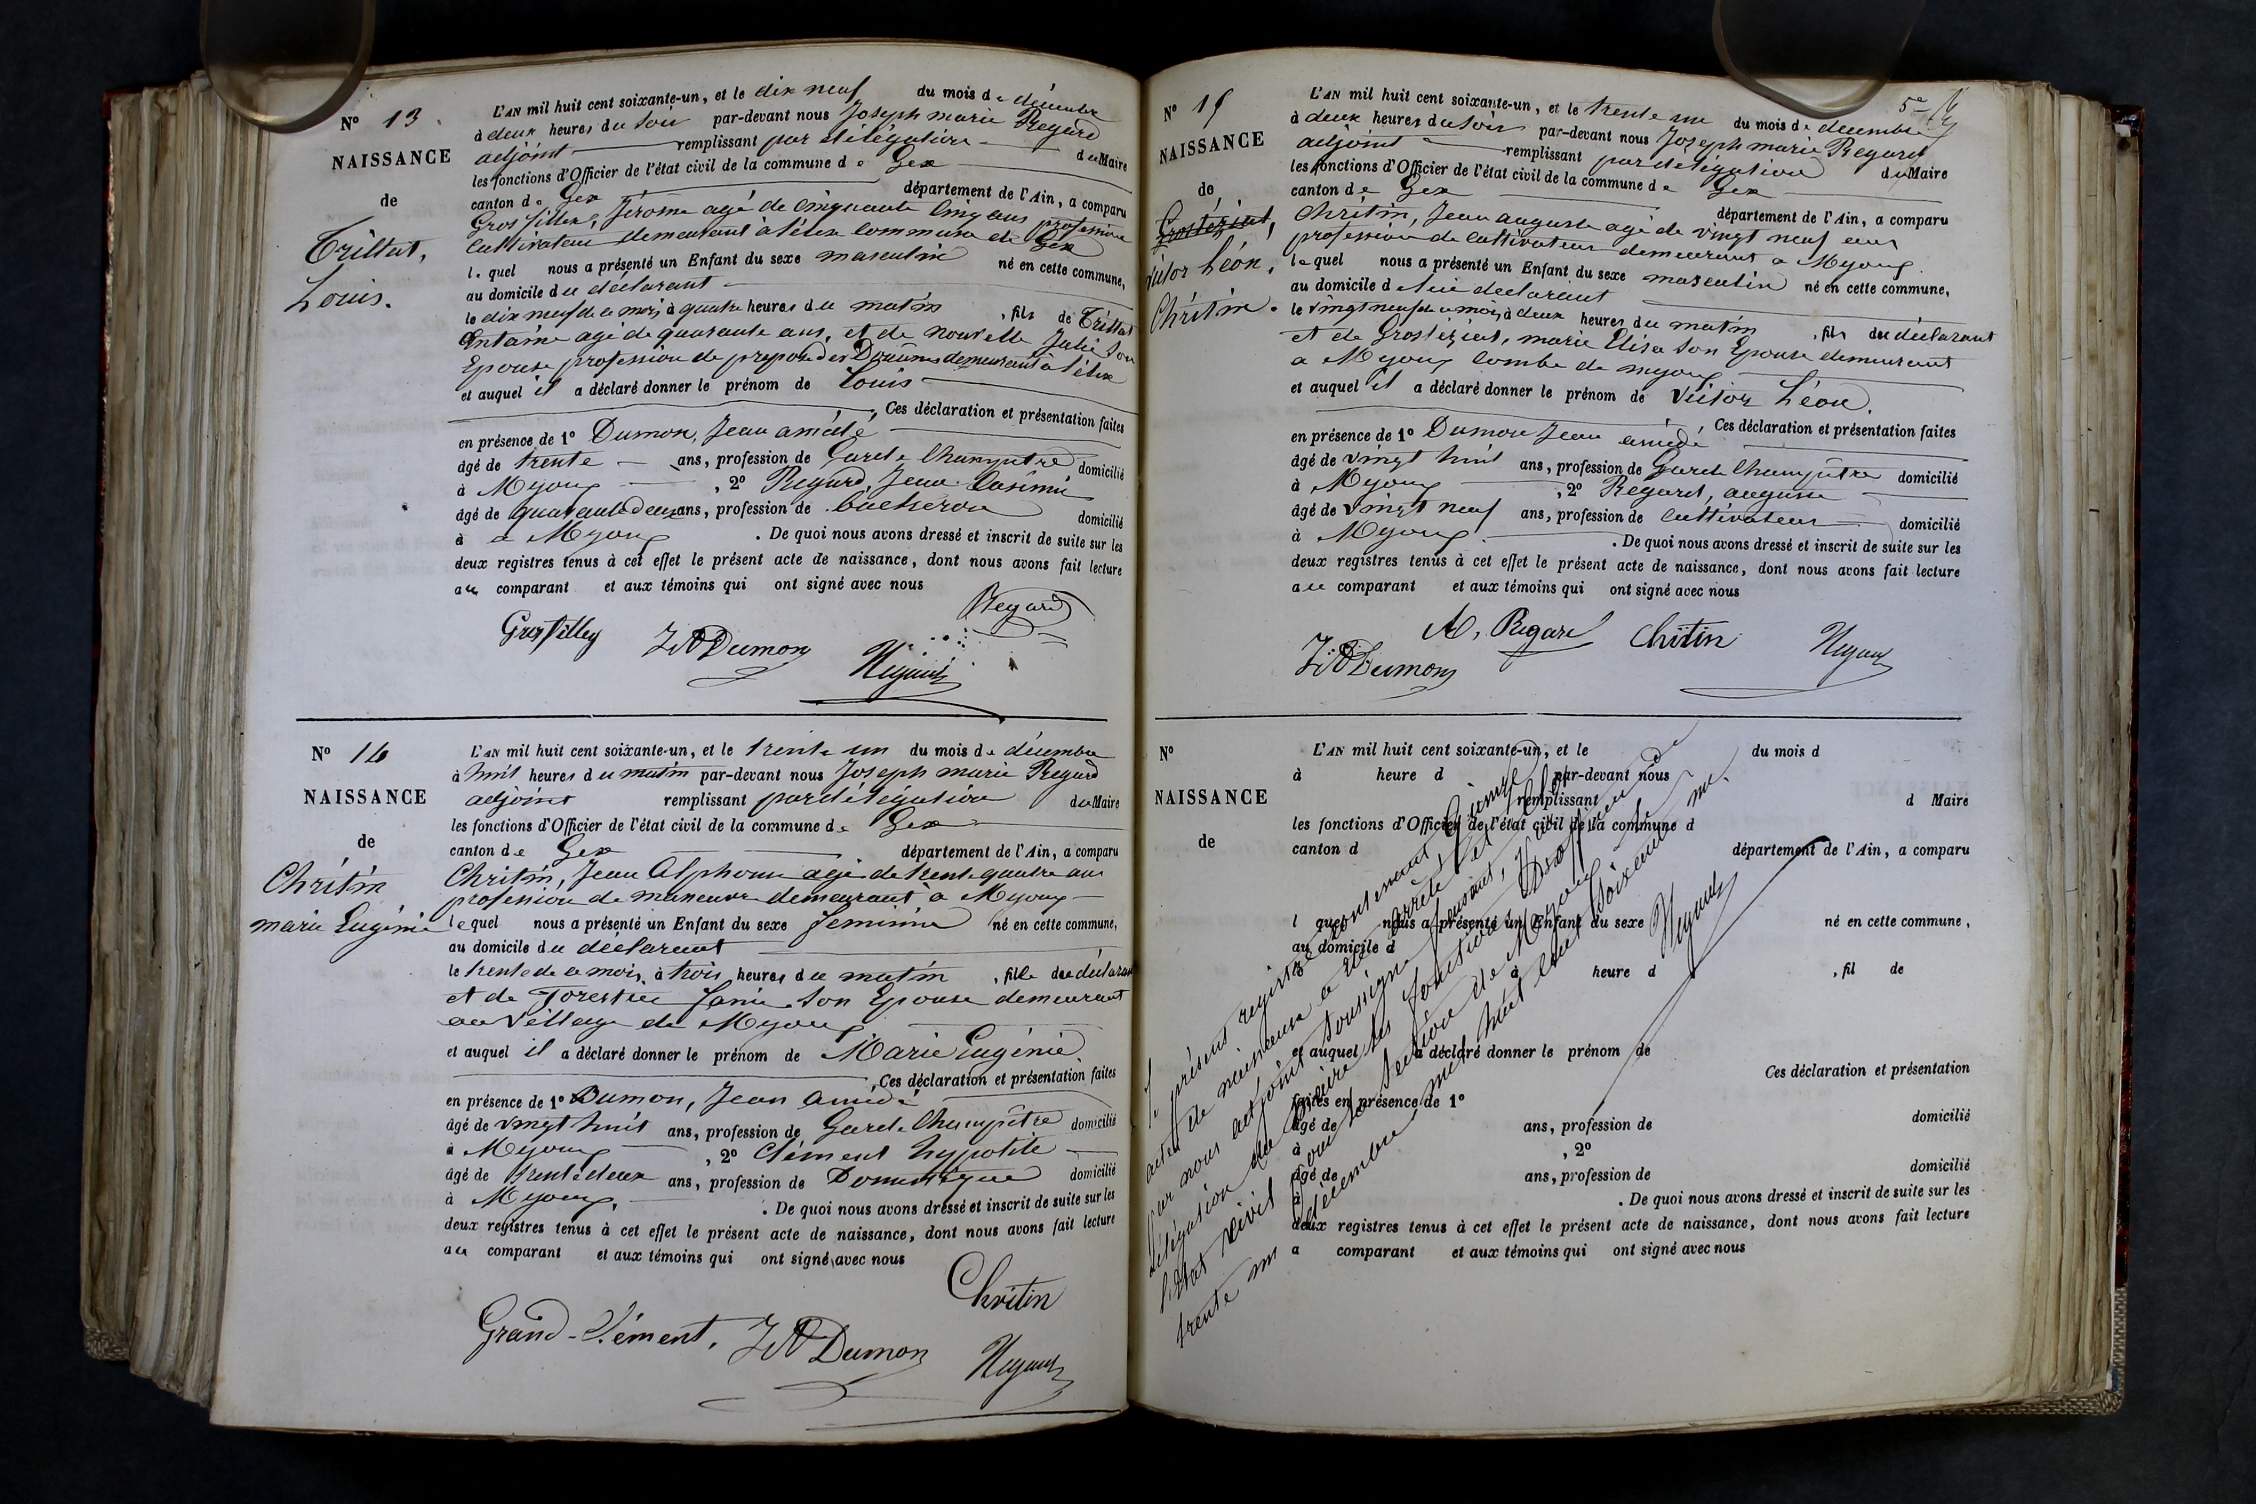 N° 13.
NAISSANCE
de
Trittat,
Louis.
L'AN mil huit cent soixante-un, et le dix neuf du mois de décembre
à deux heures du soir par-devant nous Joseph marie Regard
adjoint remplissant par délégation du Maire
les fonctions d'Officier de l'état civil de la commune de Gex
canton de Gex département de l'Ain, a comparu
Grosfilley, Jérome agé de cinquante cinq ans profession
cultivateur demeurant à lélex commune de Gex
lequel nous a présenté un Enfant du sexe masculin né en cette commune,
au domicile du déclarant
le dix neuf de ce mois, à quatre heures du matin, fils de Trittat
Antoine agé de quarante ans, et de Julie son
Epouse profession de preposé des Douanes demeurant à lélex
et auquel il a déclaré donner le prénom de Louis
, Ces déclaration et présentation faites
en présence de 1° Dumon, Jean amédé
âgé de trente ans, profession de Garde Champêtre domicilié
à Mijoux, 2° Regard, Jean Casimir
âgé de quarante deux ans, profession de bucheron domicilié
à a Mijoux. De quoi nous avons dressé et inscrit de suite sur les
deux registres tenus à cet effet le présent acte de naissance, dont nous avons fait lecture
au comparant et aux témoins qui ont signé avec nous
Regard
Grosfilley JA Dumon Regard
N° 14
NAISSANCE
de
Chritin
marie Eugénie
L'AN mil huit cent soixante-un, et le trente un du mois de décembre
à huit heures du matin par-devant nous Joseph marie Regard
adjoint remplissant par délégation du Maire
les fonctions d'Officier de l'état civil de la commune de Gex
canton de Gex département de l'Ain, a comparu
Chritin, Jean Alphonse agé de trente quatre ans
profession de maneuvre demeurant à Mijoux
lequel nous a présenté un Enfant du sexe feminin né en cette commune,
au domicile du déclarant
le trente de ce mois, à trois heures du matin, fille du déclarant
et de Forestier fanie son Epouse demeurant
au Village de Mijoux
et auquel il a déclaré donner le prénom de Marie Eugénie
, Ces déclaration et présentation faites
en présence de 1° Dumon, Jean Amédé
âgé de vingt huit ans, profession de Garde Champêtre domicilié
à Mijoux, 2° Clément hypolite
âgé de trente deux ans, profession de Domestique domicilié
à Mijoux. De quoi nous avons dressé et inscrit de suite sur les
deux registres tenus à cet effet le présent acte de naissance, dont nous avons fait lecture
au comparant et aux témoins qui ont signé avec nous
Chritin
Grand-Clément, JA Dumon Regard
5e
N° 15
NAISSANCE
de
Grostézint,
victor Léon,
Chritin.
L'AN mil huit cent soixante-un, et le trente un du mois de decembre
à deux heures du soir par-devant nous Joseph marie Regard
adjoint remplissant par délégation du Maire
les fonctions d'Officier de l'état civil de la commune de Gex
canton de Gex département de l'Ain, a comparu
Chritin, Jean auguste agé de vingt neuf ans
profession de cultivateur demeurant a Mijoux
lequel nous a présenté un Enfant du sexe masculin né en cette commune,
au domicile de lui declarant
le vingt neuf de ce mois, à deux heures du matin, fils du déclarant
et de Grostézint, marie Elisa son Epouse demeurant
a Mijoux combe de mijoux
et auquel il a déclaré donner le prénom de Victor Léon.
Ces déclaration et présentation faites
en présence de 1° Dumon Jean amédé
âgé de vingt huit ans, profession de Garde Champêtre domicilié
à Mijoux, 2° Regard, auguste
âgé de vingt neuf ans, profession de cultivateur domicilié
à Mijoux. De quoi nous avons dressé et inscrit de suite sur les
deux registres tenus à cet effet le présent acte de naissance, dont nous avons fait lecture
au comparant et aux témoins qui ont signé avec nous
A, Regard Chritin Regard
JA Dumon
N°
NAISSANCE
de
L'AN mil huit cent soixante-un, et le du mois d
à heure d par-devant nous
remplissant d Maire
les fonctions d'Officier de l'état civil de la commune d
canton d département de l'Ain, a comparu
l quel nous a présenté un Enfant du sexe né en cette commune,
au domicile d
le à heure d , fil de
et auquel a déclaré donner le prénom de
Ces déclaration et présentation
faites en présence de 1°
âgé de ans, profession de domicilié
à , 2°
âgé de ans, profession de domicilié
à . De quoi nous avons dressé et inscrit de suite sur les
deux registres tenus à cet effet le présent acte de naissance, dont nous avons fait lecture
a comparant et aux témoins qui ont signé avec nous
le présent registre contenant quinze
actes de naissance a été arrêté et clos
par nous adjoint soussigné
délégation du Maire les fonctions d'officier de
l'état civil pour la section de Mijoux le
trente un décembre mil huit cent soixante un.
Regard